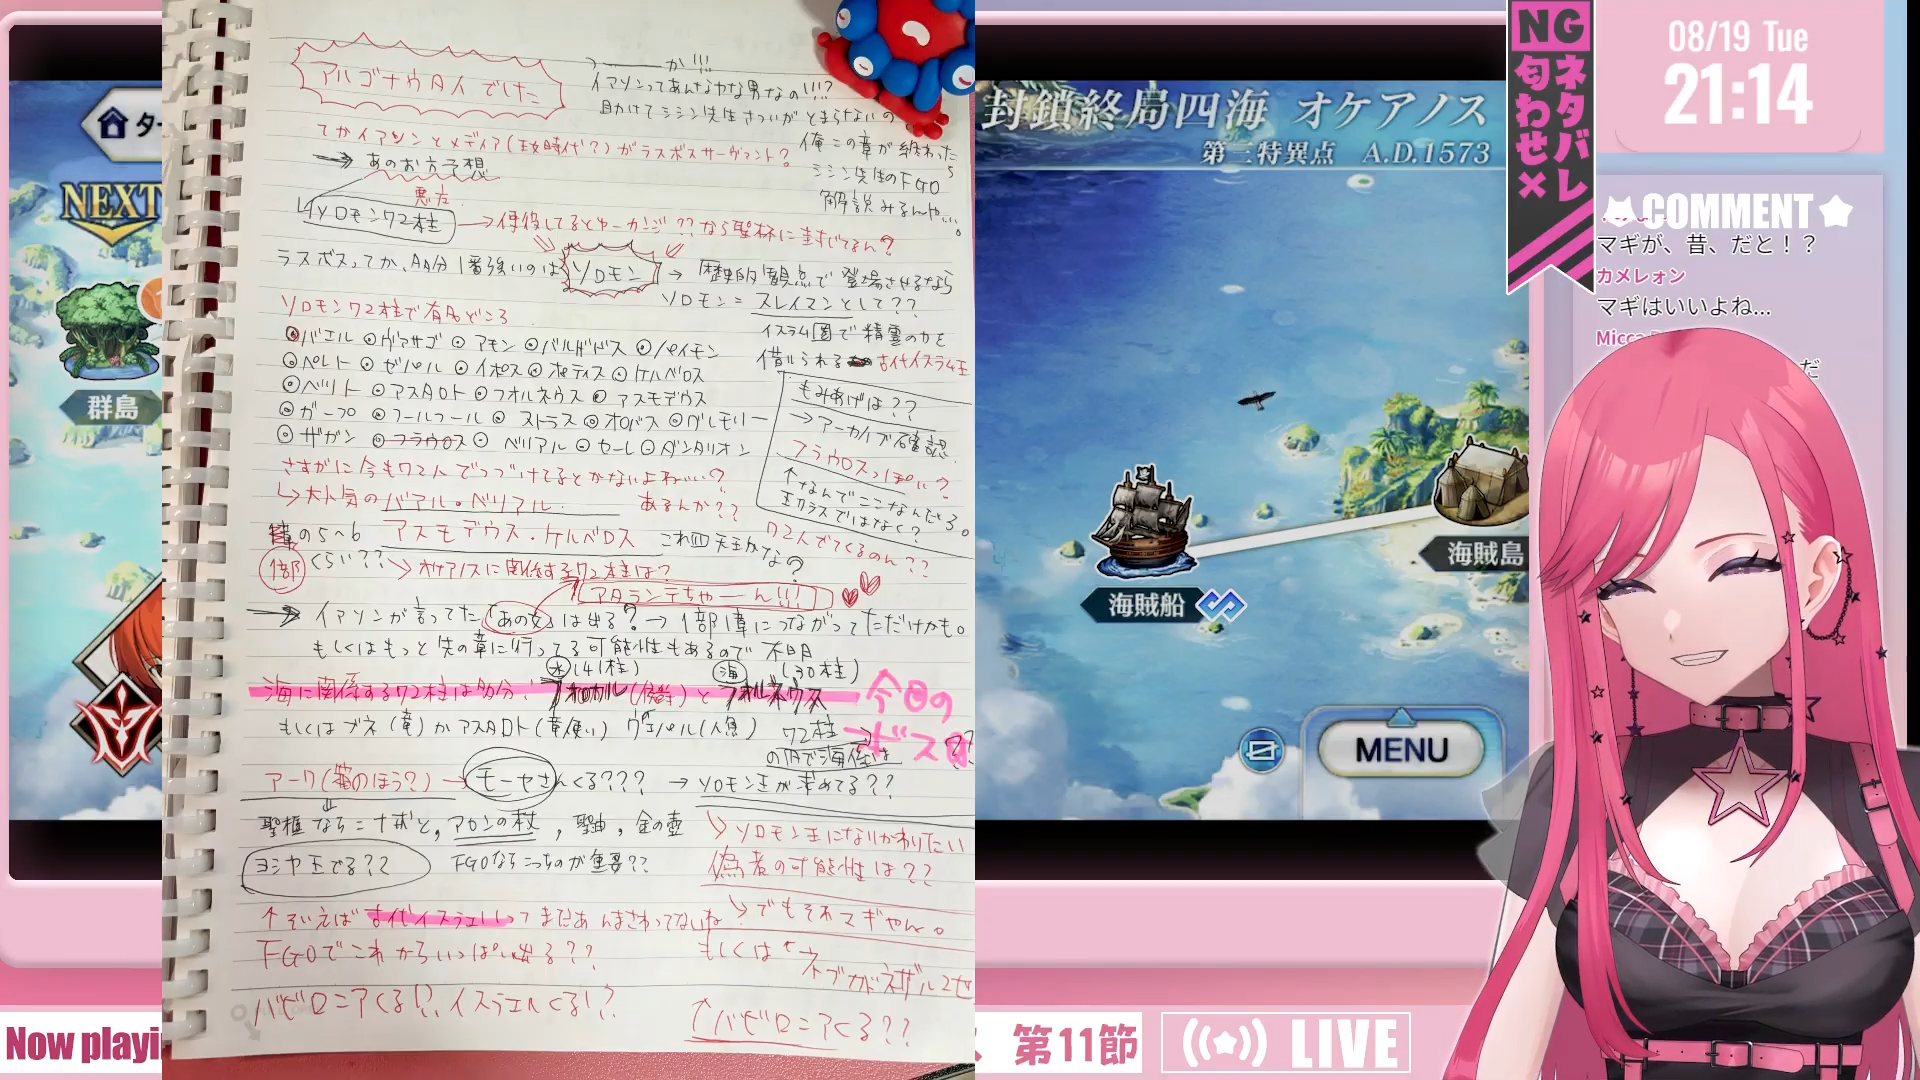 アルゴナウタイでした
か!!!
イアソンってあんなヤな男なの!!!?
助けてシシン先生 さついがとまらないの
俺この章が終わったら
シシン先生のFGO
解説みるんや…。
てかイアソンとメディア(王女時代?)がラスボスサーヴァント?
あのお方予想
悪左
ソロモン72柱
→使役してるとゆーカンジ??なら聖杯に封じてるん?
ラスボスってか、自分1番強いのは
ソロモン
→ 歴史的観点で登場させるなら
ソロモン = スレイマンとして??
イスラム圏で精霊の力を
借りられる 古代イスラム王
ソロモン72柱で有名どころ
◎バエル ◎ヴァサゴ ◎アモン ◎バルバトス ◎パイモン
◎ベレト ◎ゼパル ◎イポス ◎ボティス ◎ケルベロス
◎ベリト ◎アスタロト ◎フォルネウス ◎アスモデウス
◎ガープ ◎フールフール ◎ストラス ◎オロバス ◎グレモリー
◎ザガン ◎フラウロス ◎ベリアル ◎セーレ ◎ダンタリオン
もみあげは??
→アーカイブ確認
フラウロスっぽい?
↑なんでここなんだろ。
王クラスではなく?
さすがに今も72人でつづけてるとかないよねぃぃ?
↳大人気のバアル・ベリアル
あるんか??
の5~6
アスモデウス・ケルベロス
これ四天王かな?
72人でてくるのん??
1部
くらい??
オケアノスに関係する72柱は?
アタランテちゃーん!!!
→ イアソンが言ってた「あの女」は出る?→1部1章につながってただけかも。
もしくはもっと先の章に行ってる可能性もあるので 不明
水(41柱)
海(30柱)
海に関係する72柱は多分、フォカロル(侯爵)とフォルネウス
今回の
ボス
もしくはブネ(竜)かアスタロト(竜使い) ヴェパル(人魚)
72柱
の内で海係は
??
アーク(箱のほう?)→モーセさんくる??? → ソロモン王が求めてる??
聖櫃なら = 十戒と, アロンの杖, 聖油, 金の壺
ヨシヤ王でる??
FGOならこっちのが重要??
ソロモン王になりかわりたい
偽者の可能性は??
↑そいえば古代イスラエルってまだあんまさわってないね
でもそれマギやん。
FGOでこれからいっぱい出る??
もしくは
ネブカドネザル2世
バビロニアくる!?、イスラエルくる!?
↑バビロニアくる??
NEXT
群島
封鎖終局四海 オケアノス
第三特異点 A.D.1573
海賊島
海賊船
MENU
NG
ネタバレ
匂わせ×
08/19 Tue
21:14
COMMENT
マギが、昔、だと!?
カメレォン
マギはいいよね...
Micca
だ
Now playi
第11節
LIVE